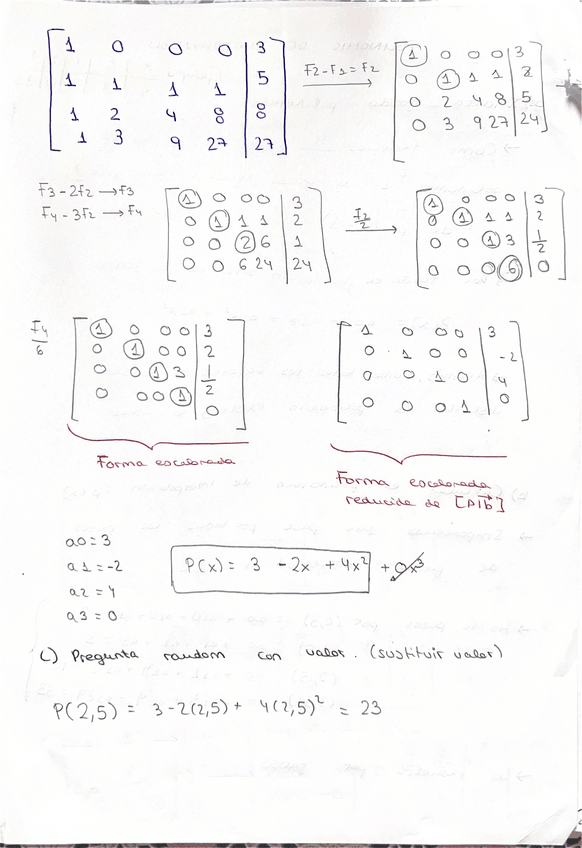 1 0 0 0 | 3
1 1 1 1 | 5
1 2 4 8 | 8
1 3 9 27 | 27
F2-F1=F2
1 0 0 0 | 3
0 1 1 1 | 2
0 2 4 8 | 5
0 3 9 27 | 24
F3-2F2→F3
F4-3F2→F4
1 0 0 0 | 3
0 1 1 1 | 2
0 0 2 6 | 1
0 0 6 24 | 24
F2/2
1 0 0 0 | 3
0 1 1 1 | 2
0 0 1 3 | 1/2
0 0 0 6 | 0
F4/6
1 0 0 0 | 3
0 1 0 0 | 2
0 0 1 3 | 1/2
0 0 0 1 | 0
Forma escalonada
1 0 0 0 | 3
0 1 0 0 | -2
0 0 1 0 | 4
0 0 0 1 | 0
Forma escalonada
reducida de [A|b]
a0=3
a1=-2
a2=4
a3=0
P(x) = 3 -2x +4x² + 0x³
C) Pregunta random con valor. (sustituir valor)
P(2,5) = 3-2(2,5)+ 4(2,5)² = 23